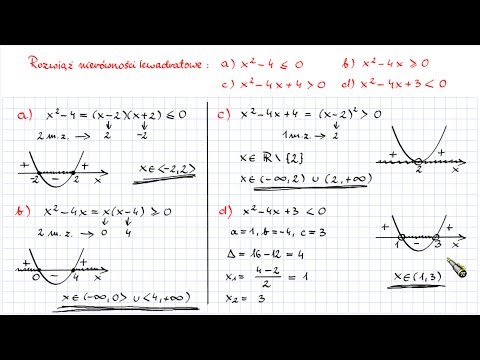 Rozwiąż nierówności kwadratowe: a) x²-4 ≤ 0 b) x²-4x ≥ 0
c) x²-4x+4 > 0 d) x²-4x+3 < 0
a) x²-4 = (x-2)(x+2) ≤ 0
2 m.z. → 2 -2
+ + -2 - 2 x
x∈<-2,2>
b) x²-4x = x(x-4) ≥ 0
2 m.z. → 0 4
+ + 0 - 4 x
x∈(-∞,0> ∪ <4,+∞)
c) x²-4x+4 = (x-2)² > 0
1 m.z. → 2
x∈ ℝ \ {2}
x∈(-∞,2) ∪ (2,+∞)
+ + 2 x
d) x²-4x+3 < 0
a=1, b=-4, c=3
Δ = 16-12 = 4
x₁ = (4-2)/2 = 1
x₂ = 3
+ + 1 - 3 x
x∈(1,3)